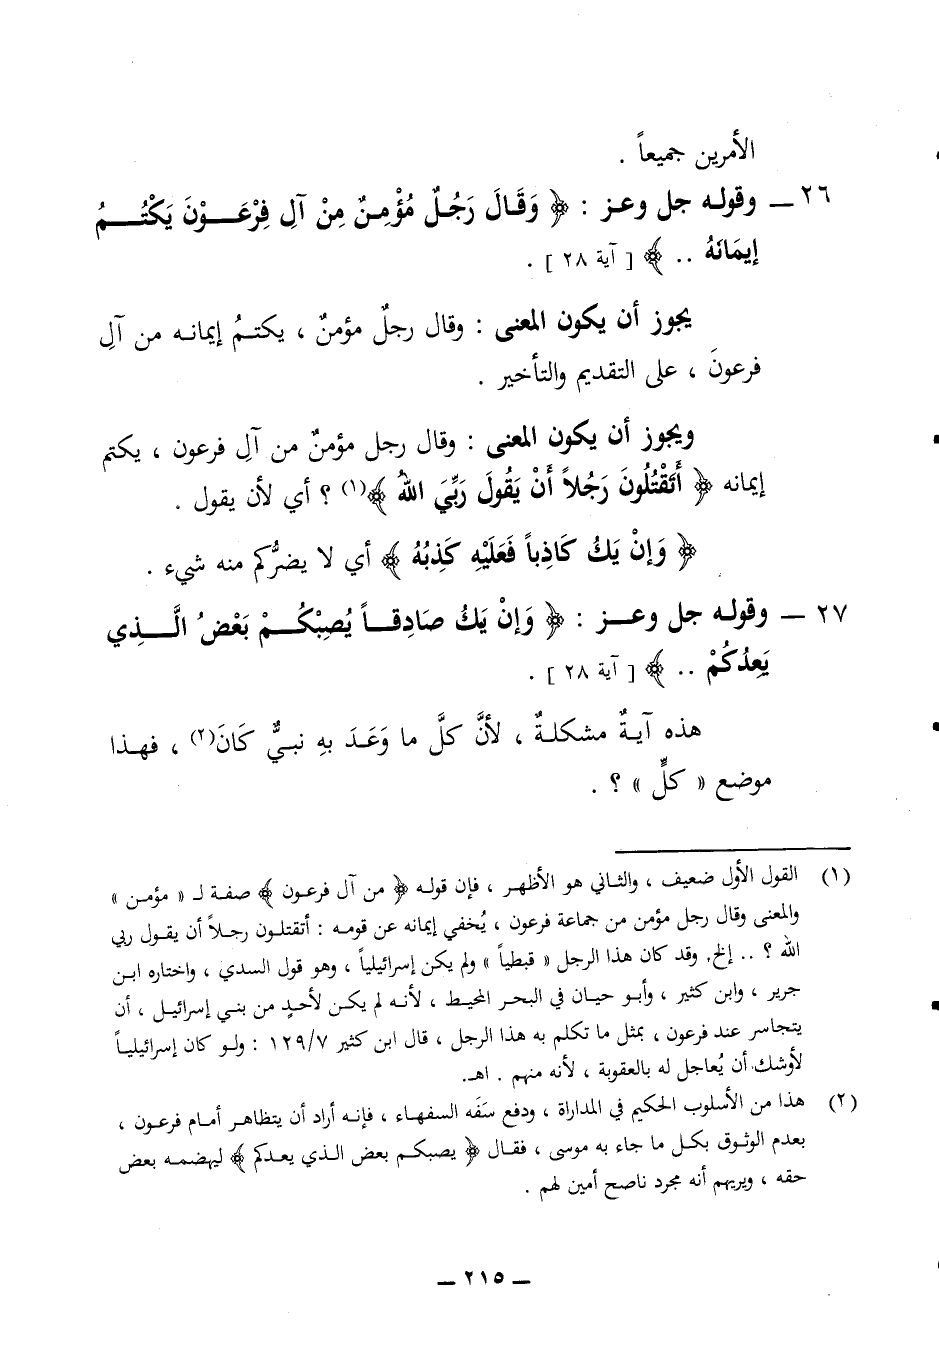 الأمرين جميعاً .
٢٦ ــ وقوله جل وعز : ﴿ وَقَالَ رَجُلٌ مُؤْمِنٌ مِنْ آلِ فِرْعَـوْنَ يَكْتُـــمُ
إيمَانَهُ .. ﴾ [ آية ٢٨ ] .
يجوز أن يكون المعنى : وقال رجلٌ مؤمنٌ ، يكتـمُ إيمانـه من آلِ
فرعونَ ، على التقديم والتأخير .
ويجوز أن يكون المعنى : وقال رجل مؤمنٌ من آلِ فرعون ، يكتم
إيمانه ﴿ أَتَقْتُلُونَ رَجُلاً أَنْ يَقُولَ رَبِّيَ اللهُ ﴾(١) ؟ أي لأن يقول .
﴿ وَإنْ يَكُ كَاذِباً فَعَلَيْهِ كَذِبُهُ ﴾ أي لا يضرُّكم منه شيء .
٢٧ ــ وقولـه جل وعــز : ﴿ وَإنْ يَكُ صَادِقــاً يُصِبْكُــمْ بَعْضُ الَّــذِي
يَعِدُكُمْ .. ﴾ [ آية ٢٨ ] .
هذه آيـةٌ مشكلـةٌ ، لأنَّ كلَّ ما وَعَـدَ بهِ نبـيٌّ كَانَ(٢) ، فهـذا
موضع « كلٍّ » ؟ .
(١) القول الأول ضعيف ، والثاني هو الأظهر ، فإن قوله ﴿ من آل فرعون ﴾ صفة لـ « مؤمـن »
والمعنى وقال رجل مؤمن من جماعة فرعون ، يُخفي إيمانه عن قومـه : أتقتلـون رجـلاً أن يقـول ربي
الله ؟ .. إلخ. وقد كان هذا الرجل « قبطياً » ولم يكن إسرائيلياً ، وهو قول السدي ، واختاره ابـن
جرير ، وابن كثير ، وأبـو حيـان في البحـر المحيـط ، لأنـه لم يكـن لأحـدٍ من بنـي إسرائيـل ، أن
يتجاسر عند فرعون ، بمثل ما تكلم به هذا الرجل ، قال ابن كثير ١٢٩/٧ : ولـو كان إسرائيليـاً
لأوشك أن يُعاجل له بالعقوبة ، لأنه منهم . اهـ.
(٢) هذا من الأسلوب الحكيم في المداراة ، ودفع سَفَه السفهاء ، فإنـه أراد أن يتظاهـر أمـام فرعـون ،
بعدم الوثوق بكـل ما جاء به موسى ، فقـال ﴿ يصبكـم بعض الـذي يعـدكم ﴾ ليهضمـه بعض
حقه ، ويريهم أنه مجرد ناصح أمين لهم .
ــ ٢١٥ ــ